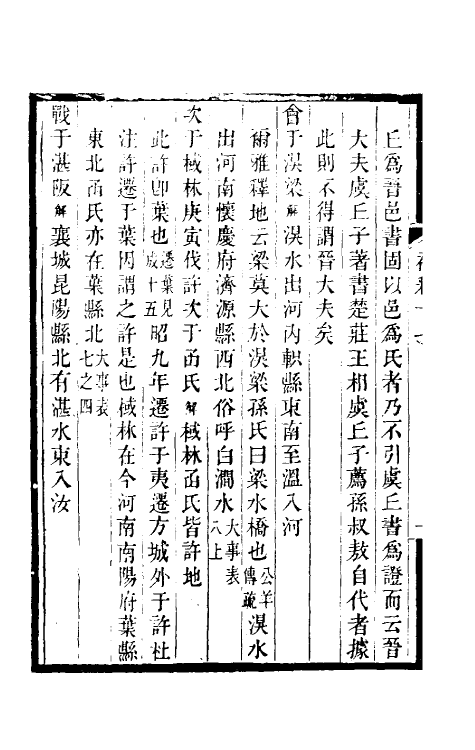 丘爲晉邑書固以邑爲氏者乃不引虞丘書爲證而云晉
大夫虞丘子著書楚莊王相虞丘子薦孫叔敖自代者據
此則不得謂晉大夫矣
會于湨梁解湨水出河內軹縣東南至溫入河
爾雅釋地云梁莫大於湨梁孫氏曰梁水橋也公羊傳疏湨水
出河南懷慶府濟源縣西北俗呼白澗水大事表八上
次于棫林庚寅伐許次于函氏解棫林函氏皆許地
此許卽葉也遷葉見成十五昭九年遷許于夷遷方城外于許杜
注許遷于葉因謂之許是也棫林在今河南南陽府葉縣
東北函氏亦在葉縣北大事表七之四
戰于湛阪解襄城昆陽縣北有湛水東入汝